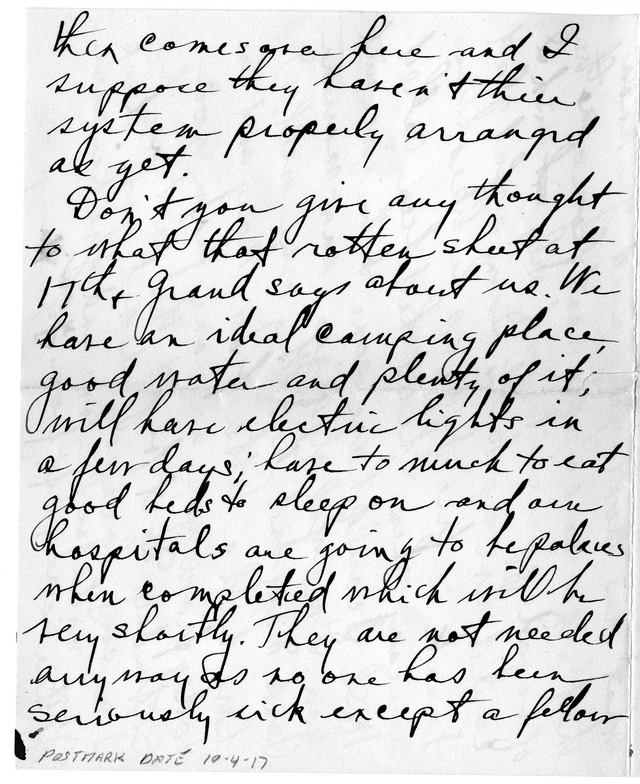 then comes over here and I
suppose they haven't thier
system properly arranged
as yet.
Don't you give any thought
to what that rotten sheet at
17th & Grand says about us. We
have an ideal camping place,
good water and plenty of it;
will have electric lights in
a few days; have to much to eat
good beds to sleep on and our
hospitals are going to be palaces
when completed which will be
very shortly. They are not needed
anyway as no one has been
seriously sick except a fellow
POSTMARK DATE 10-4-17